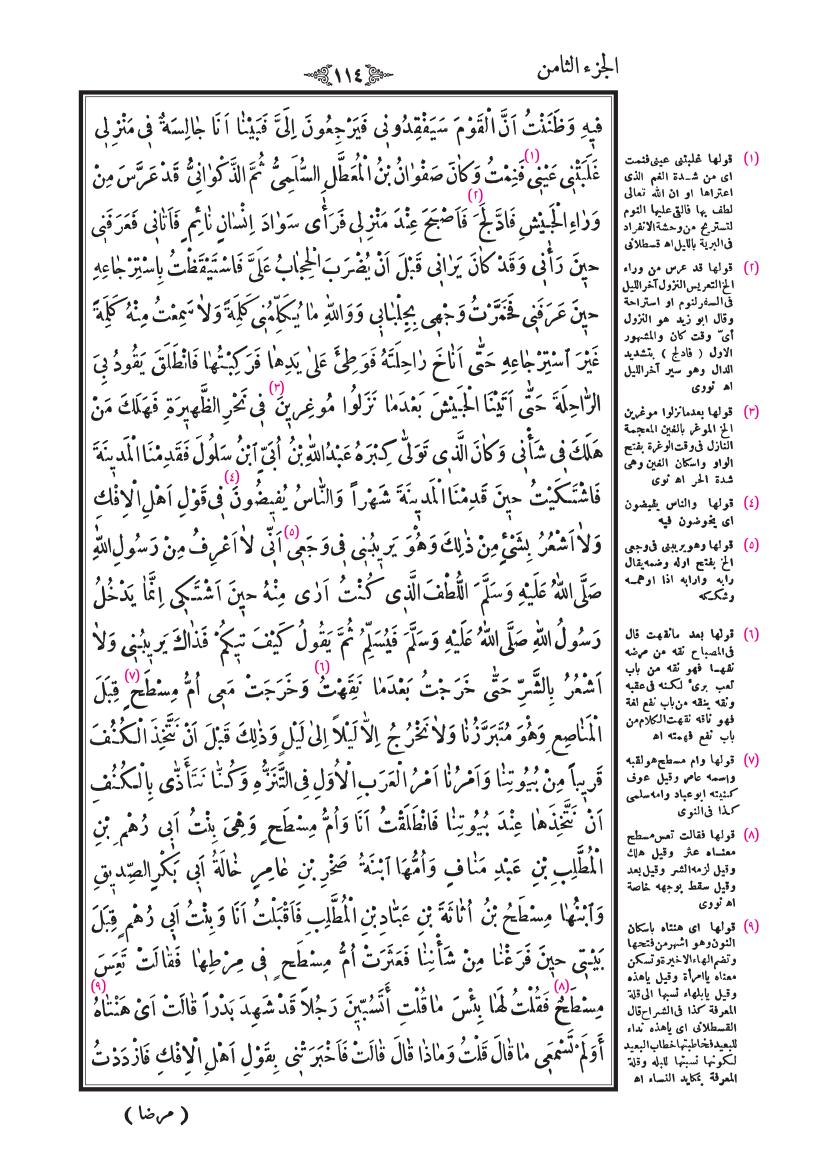 الجزء الثامن
١١٤
فِيهِ وَظَنَنْتُ اَنَّ الْقَوْمَ سَيَفْقِدُونِى فَيَرْجِعُونَ اِلَىَّ فَبَيْنَا اَنَا جَالِسَةٌ فِى مَنْزِلِى
غَلَبَتْنِى عَيْنِى (١) فَنِمْتُ وَكَانَ صَفْوَانُ بْنُ الْمُعَطَّلِ السُّلَمِىُّ ثُمَّ الذَّكْوَانِىُّ قَدْ عَرَّسَ مِنْ
وَرَاءِ الْجَيْشِ فَادَّلَجَ (٢) فَاَصْبَحَ عِنْدَ مَنْزِلِى فَرَأٰى سَوَادَ اِنْسَانٍ نَائِمٍ فَاَتَانِى فَعَرَفَنِى
حِينَ رَأٰنِى وَقَدْ كَانَ يَرَانِى قَبْلَ اَنْ يُضْرَبَ الْحِجَابُ عَلَىَّ فَاسْتَيْقَظْتُ بِاسْتِرْجَاعِهِ
حِينَ عَرَفَنِى فَخَمَّرْتُ وَجْهِى بِجِلْبَابِى وَوَاللهِ مَا يُكَلِّمُنِى كَلِمَةً وَلَا سَمِعْتُ مِنْهُ كَلِمَةً
غَيْرَ اسْتِرْجَاعِهِ حَتّٰى اَنَاخَ رَاحِلَتَهُ فَوَطِئَ عَلَى يَدِهَا فَرَكِبْتُهَا فَانْطَلَقَ يَقُودُ بِىَ
الرَّاحِلَةَ حَتّٰى اَتَيْنَا الْجَيْشَ بَعْدَمَا نَزَلُوا مُوغِرِينَ (٣) فِى نَحْرِ الظَّهِيرَةِ فَهَلَكَ مَنْ
هَلَكَ فِى شَأْنِى وَكَانَ الَّذِى تَوَلّٰى كِبْرَهُ عَبْدُاللهِ بْنُ اُبَىٍّ ابْنُ سَلُولَ فَقَدِمْنَا الْمَدِينَةَ
فَاشْتَكَيْتُ حِينَ قَدِمْنَا الْمَدِينَةَ شَهْرًا وَالنَّاسُ يُفِيضُونَ (٤) فِى قَوْلِ اَهْلِ الْاِفْكِ
وَلَا اَشْعُرُ بِشَىْءٍ مِنْ ذٰلِكَ وَهُوَ يَرِيبُنِى فِى وَجَعِى (٥) اَنِّى لَا اَعْرِفُ مِنْ رَسُولِ اللهِ
صَلَّى اللهُ عَلَيْهِ وَسَلَّمَ اللُّطْفَ الَّذِى كُنْتُ اَرٰى مِنْهُ حِينَ اَشْتَكِى اِنَّمَا يَدْخُلُ
رَسُولُ اللهِ صَلَّى اللهُ عَلَيْهِ وَسَلَّمَ فَيُسَلِّمُ ثُمَّ يَقُولُ كَيْفَ تِيكُمْ فَذَاكَ يَرِيبُنِى وَلَا
اَشْعُرُ بِالشَّرِّ حَتّٰى خَرَجْتُ بَعْدَمَا نَقَهْتُ (٦) وَخَرَجَتْ مَعِى اُمُّ مِسْطَحٍ (٧) قِبَلَ
الْمَنَاصِعِ وَهُوَ مُتَبَرَّزُنَا وَلَا نَخْرُجُ اِلَّا لَيْلًا اِلٰى لَيْلٍ وَذٰلِكَ قَبْلَ اَنْ نَتَّخِذَ الْكُنُفَ
قَرِيباً مِنْ بُيُوتِنَا وَاَمْرُنَا اَمْرُ الْعَرَبِ الْاُوَلِ فِى التَّنَزُّهِ وَكُنَّا نَتَأَذّٰى بِالْكُنُفِ
اَنْ نَتَّخِذَهَا عِنْدَ بُيُوتِنَا فَانْطَلَقْتُ اَنَا وَاُمُّ مِسْطَحٍ وَهِىَ بِنْتُ اَبِى رُهْمِ بْنِ
الْمُطَّلِبِ بْنِ عَبْدِ مَنَافٍ وَاُمُّهَا ابْنَةُ صَخْرِ بْنِ عَامِرٍ خَالَةُ اَبِى بَكْرٍ الصِّدِّيقِ
وَابْنُهَا مِسْطَحُ بْنُ اُثَاثَةَ بْنِ عَبَّادِ بْنِ الْمُطَّلِبِ فَاَقْبَلْتُ اَنَا وَبِنْتُ اَبِى رُهْمٍ قِبَلَ
بَيْتِى حِينَ فَرَغْنَا مِنْ شَأْنِنَا فَعَثَرَتْ اُمُّ مِسْطَحٍ فِى مِرْطِهَا فَقَالَتْ تَعِسَ
مِسْطَحٌ (٨) فَقُلْتُ لَهَا بِئْسَ مَا قُلْتِ أَتَسُبِّينَ رَجُلًا قَدْ شَهِدَ بَدْراً قَالَتْ اَىْ هَنْتَاهُ (٩)
أَوَلَمْ تَسْمَعِى مَا قَالَ قُلْتُ وَمَاذَا قَالَ قَالَتْ فَاَخْبَرَتْنِى بِقَوْلِ اَهْلِ الْاِفْكِ فَازْدَدْتُ
( مرضا )
(١) قولها غلبتنى عينى فنمت
اى من شدة الغم الذى
اعتراها او ان الله تعالى
لطف بها فالقى عليها النوم
لتستريح من وحشة الانفراد
فى البرية بالليل اه قسطلانى
(٢) قولها قد عرس من وراء
الخ التعريس النزول آخر الليل
فى السفر لنوم او استراحة
وقال ابو زيد هو النزول
أىّ وقت كان والمشهور
الاول ( فادلج ) بتشديد
الدال وهو سير آخر الليل
اه نووى
(٣) قولها بعدما نزلوا موغرين
الخ الموغر بالغين المعجمة
النازل فى وقت الوغرة بفتح
الواو واسكان الغين وهى
شدة الحر اه نوى
(٤) قولها والناس يفيضون
اى يخوضون فيه
(٥) قولها وهو يريبنى فى وجعى
الخ بفتح اوله وضمه يقال
رابه وارابه اذا اوهمه
وشككه
(٦) قولها بعد مانقهت قال
فى المصباح نقه من مرضه
نقها فهو نقه من باب
تعب برئ لكنه فى عقبه
ونقه ينقه من باب نفع لغة
فهو ناقه نقهت الكلام من
باب نفع فهمته اه
(٧) قولها وام مسطح هو لقبه
واسمه عامر وقيل عوف
كنيته ابو عباد وامه سلمى
كذا فى النوى
(٨) قولها فقالت تعس مسطح
معناه عثر وقيل هلك
وقيل لزمه الشر وقيل بعد
وقيل سقط بوجهه خاصة
اه نووى
(٩) قولها اى هنتاه باسكان
النون وهو اشهر من فتحها
وتضم الهاء الاخيرة وتسكن
معناه ياامرأة وقيل ياهذه
وقيل يابلهاء نسبها الى قلة
المعرفة كذا فى الشراح قال
القسطلانى اى ياهذه نداء
للبعيد فخاطبتها خطاب البعيد
لكونها نسبتها للبله وقلة
المعرفة بمكايد النساء اه